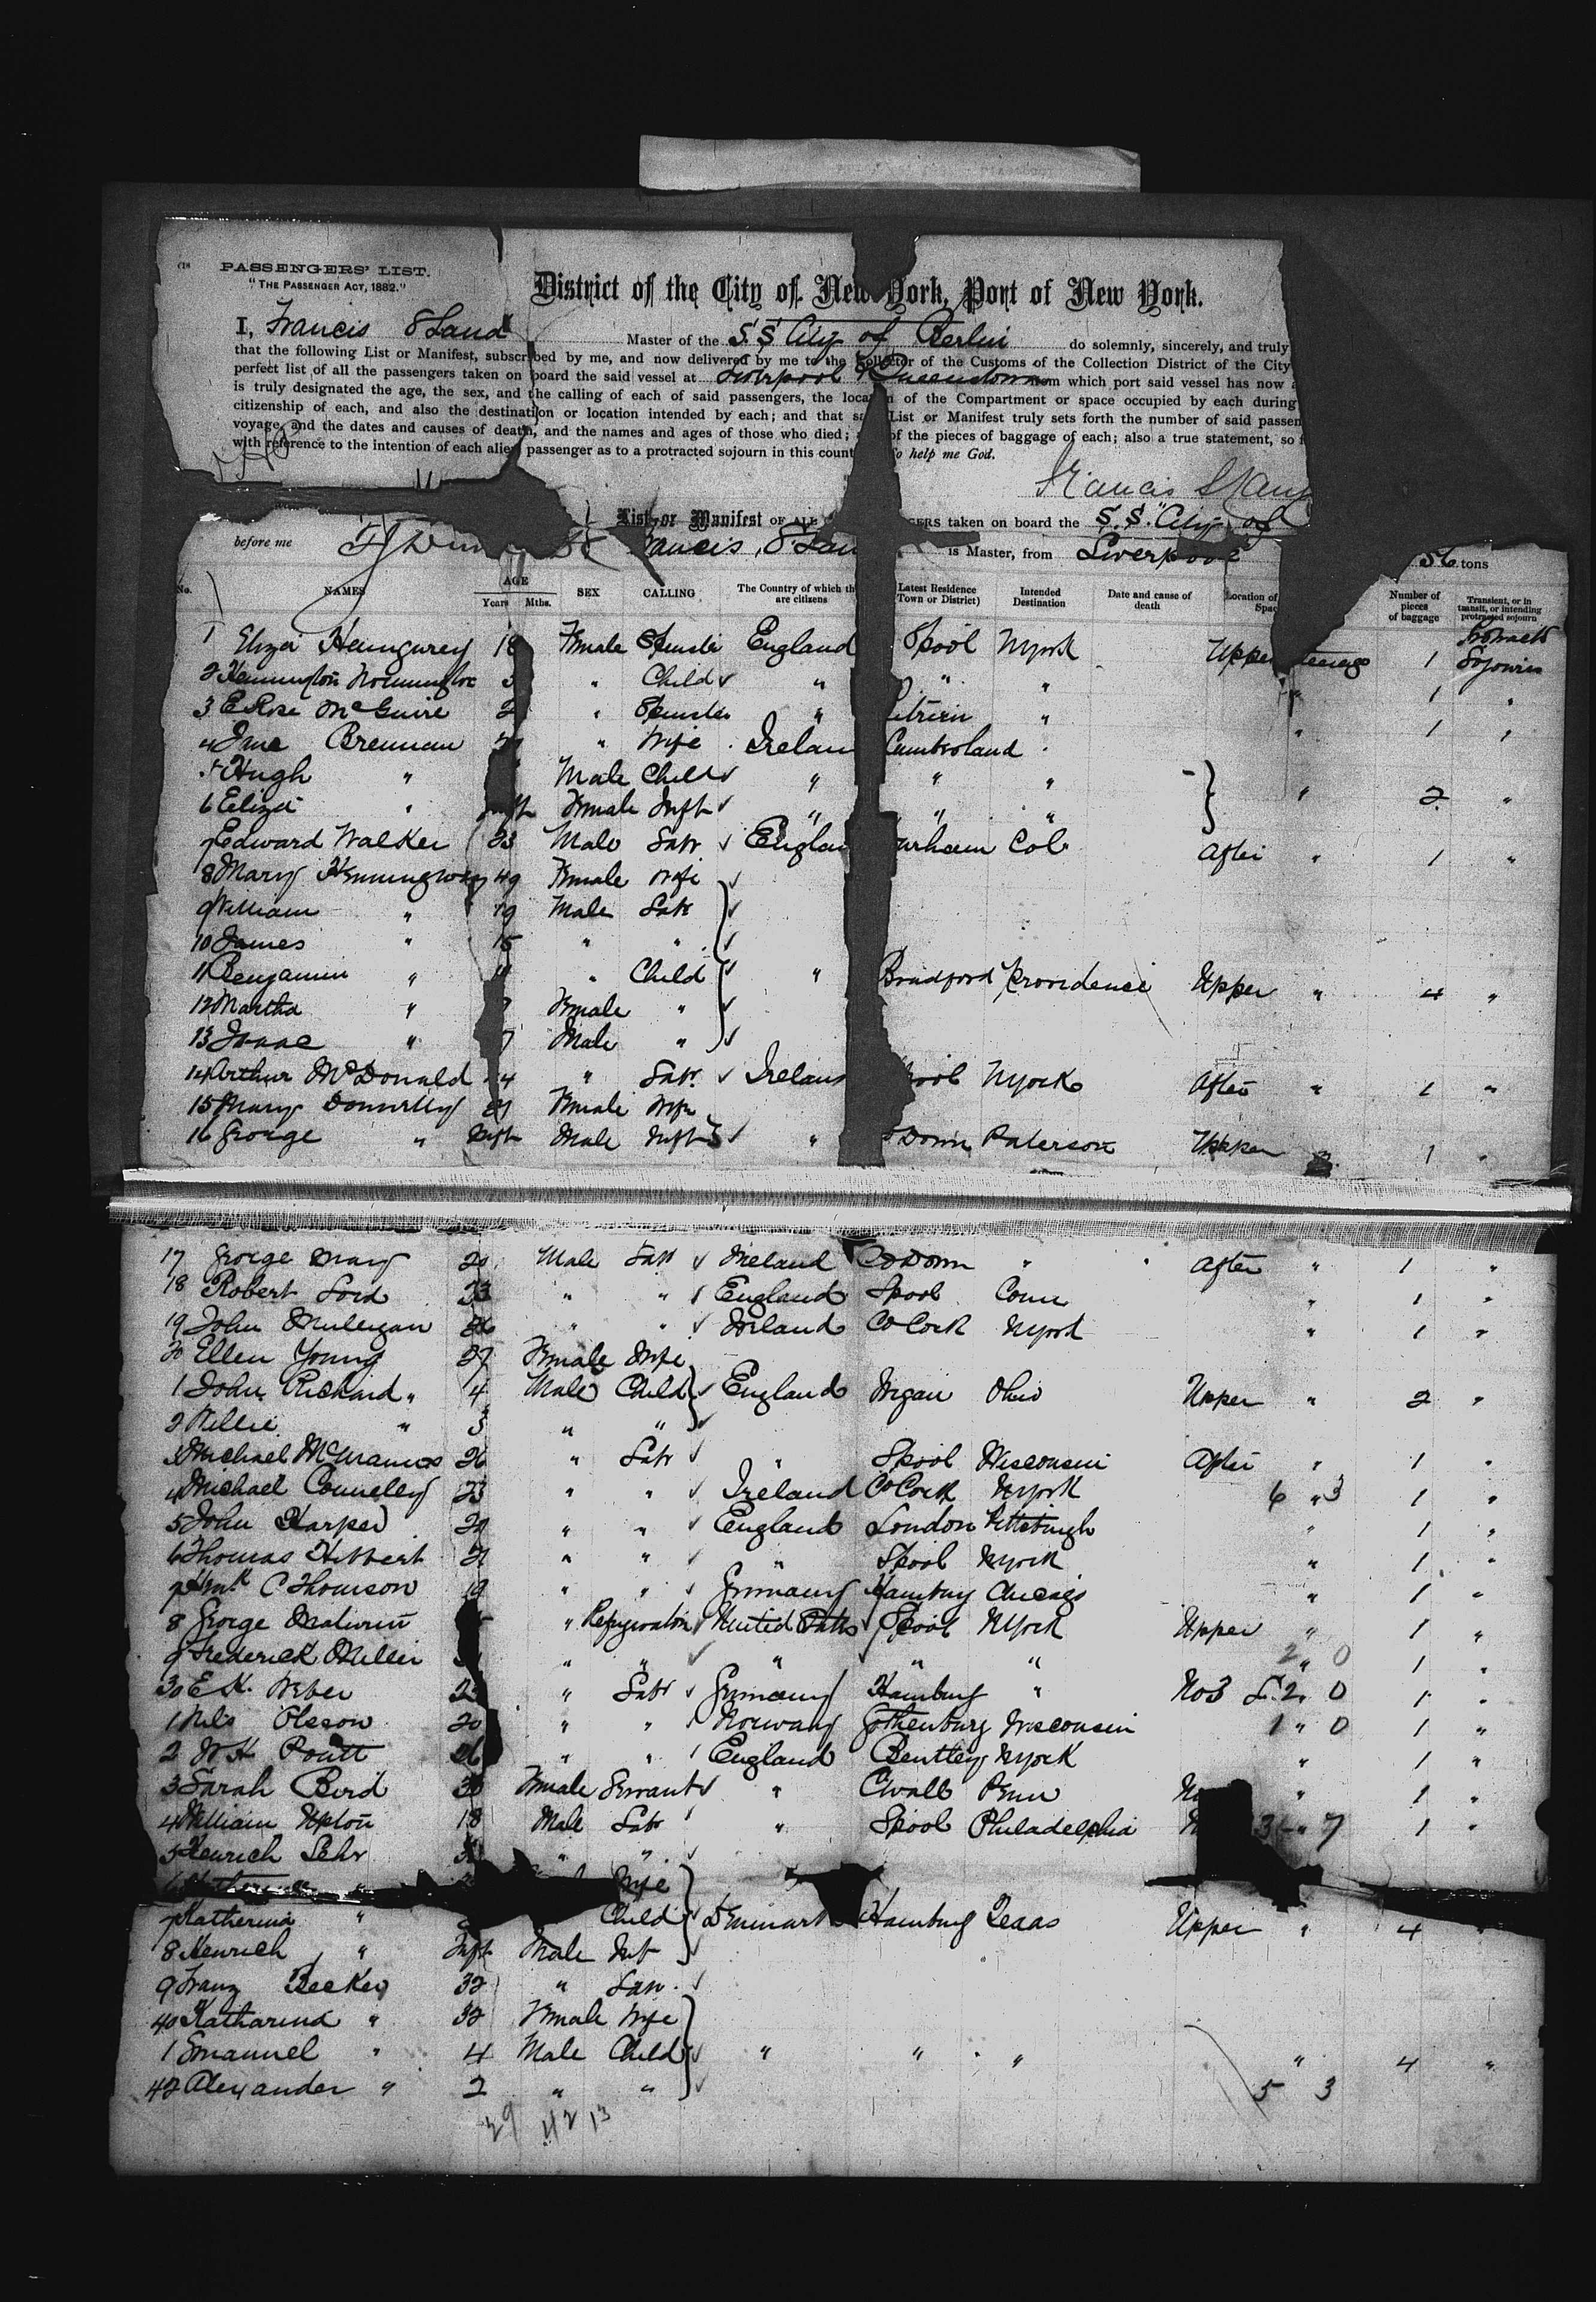 PASSENGERS' LIST.
"THE PASSENGER ACT, 1882."
District of the City of New York, Port of New York.
I, Francis S Land Master of the S.S City of Berlin do solemnly, sincerely, and truly
that the following List or Manifest, subscribed by me, and now delivered by me to the Collector of the Customs of the Collection District of the City
perfect list of all the passengers taken on board the said vessel at Liverpool & Queenstown from which port said vessel has now
is truly designated the age, the sex, and the calling of each of said passengers, the location of the Compartment or space occupied by each during
citizenship of each, and also the destination or location intended by each; and that said List or Manifest truly sets forth the number of said passen
voyage, and the dates and causes of death, and the names and ages of those who died; of the pieces of baggage of each; also a true statement, so
with reference to the intention of each alien passenger as to a protracted sojourn in this count o help me God.
Francis S Lan
List or Manifest OF ALL GERS taken on board the S.S. "City of
before me ancis S Lan is Master, from Liverpool 56 tons
No. NAMES AGE Years Mths. SEX CALLING The Country of which th are citizens Latest Residence Town or District) Intended Destination Date and cause of death Location of Spac Number of pieces of baggage Transient, or in transit, or intending protracted sojourn
1 Eliza Hemgurey 18 Female Spinster England Lpool NYork Upper Steerage 1 Protracted Sojourn
2 " Child " " " " 1 "
3 E Rose McGuire " Spinster " " " 1 "
4 Brennan " Wife Irelan Cumberland "
5 Hugh " Male Child " " " " 2 "
6 Eliza " Inft Female Inft " " "
7 Edward Walker 23 Male Labr Englan urham Col After " 1 "
8 Mary Hemingway 49 Female Wife
9 William " 19 Male Labr
10 James " 15 " "
11 Benjamin " 11 " Child " Bradford Providence Upper " 4 "
12 Martha " Female "
13 Isaac " 7 Male "
14 Arthur McDonald 4 " Labr Irelan pool NYork After " 1 "
15 Mary Donnelly 21 Female Wife
16 George " Inft Male Inft " Down Paterson Upper 1 "
17 George Mary 20 Male Labr Ireland Co Down " After " 1 "
18 Robert Lord 23 " " England Lpool Conn " 1 "
19 John Mulligan 26 " " Ireland Co Cork NYork " 1 "
20 Ellen Young 27 Female Wife
1 John Richard " 4 Male Child England Wigan Ohio Upper " 2 "
2 Willie " 3 " "
3 Michael McManus 26 " Labr " Lpool Wisconsin After " 1 "
4 Michael Connelly 23 " " Ireland Co Cork NYork 6 " 3 1 "
5 John Harper 20 " " England London Pittsburgh " 1 "
6 Thomas Hibbert 21 " " " Lpool NYork " 1 "
7 C Thomson 19 " " Germany Hamburg Chicago " 1 "
8 George " United States Lpool NYork Upper " 1 "
9 Frederick Miller " " " " " 2 " 0 1 "
30 E K. Weber 23 " Labr Germany Hamburg " No3 2 " 0 1 "
1 Nels Olsson 20 " " Norway Gothenburg Wisconsin 1 " 0 1 "
2 W H 26 " " England Bentley NYork " 1 "
3 Sarah Bird 30 Female Servant " Cwall Penn No " 1 "
4 William Upton 18 Male Labr " Lpool Philadelphia " 7 1 "
5 Heinrich Lehr " "
" Wife
7 Katherina " Child Denmark Hamburg Texas Upper " 4
8 Heinrich " Inft Male Inft
9 Franz Becker 32 " Labr
40 Katharina " 32 Female Wife
1 Emanuel " 4 Male Child " " " " 4 "
42 Alexander " 2 " " 5 3
29 42 13